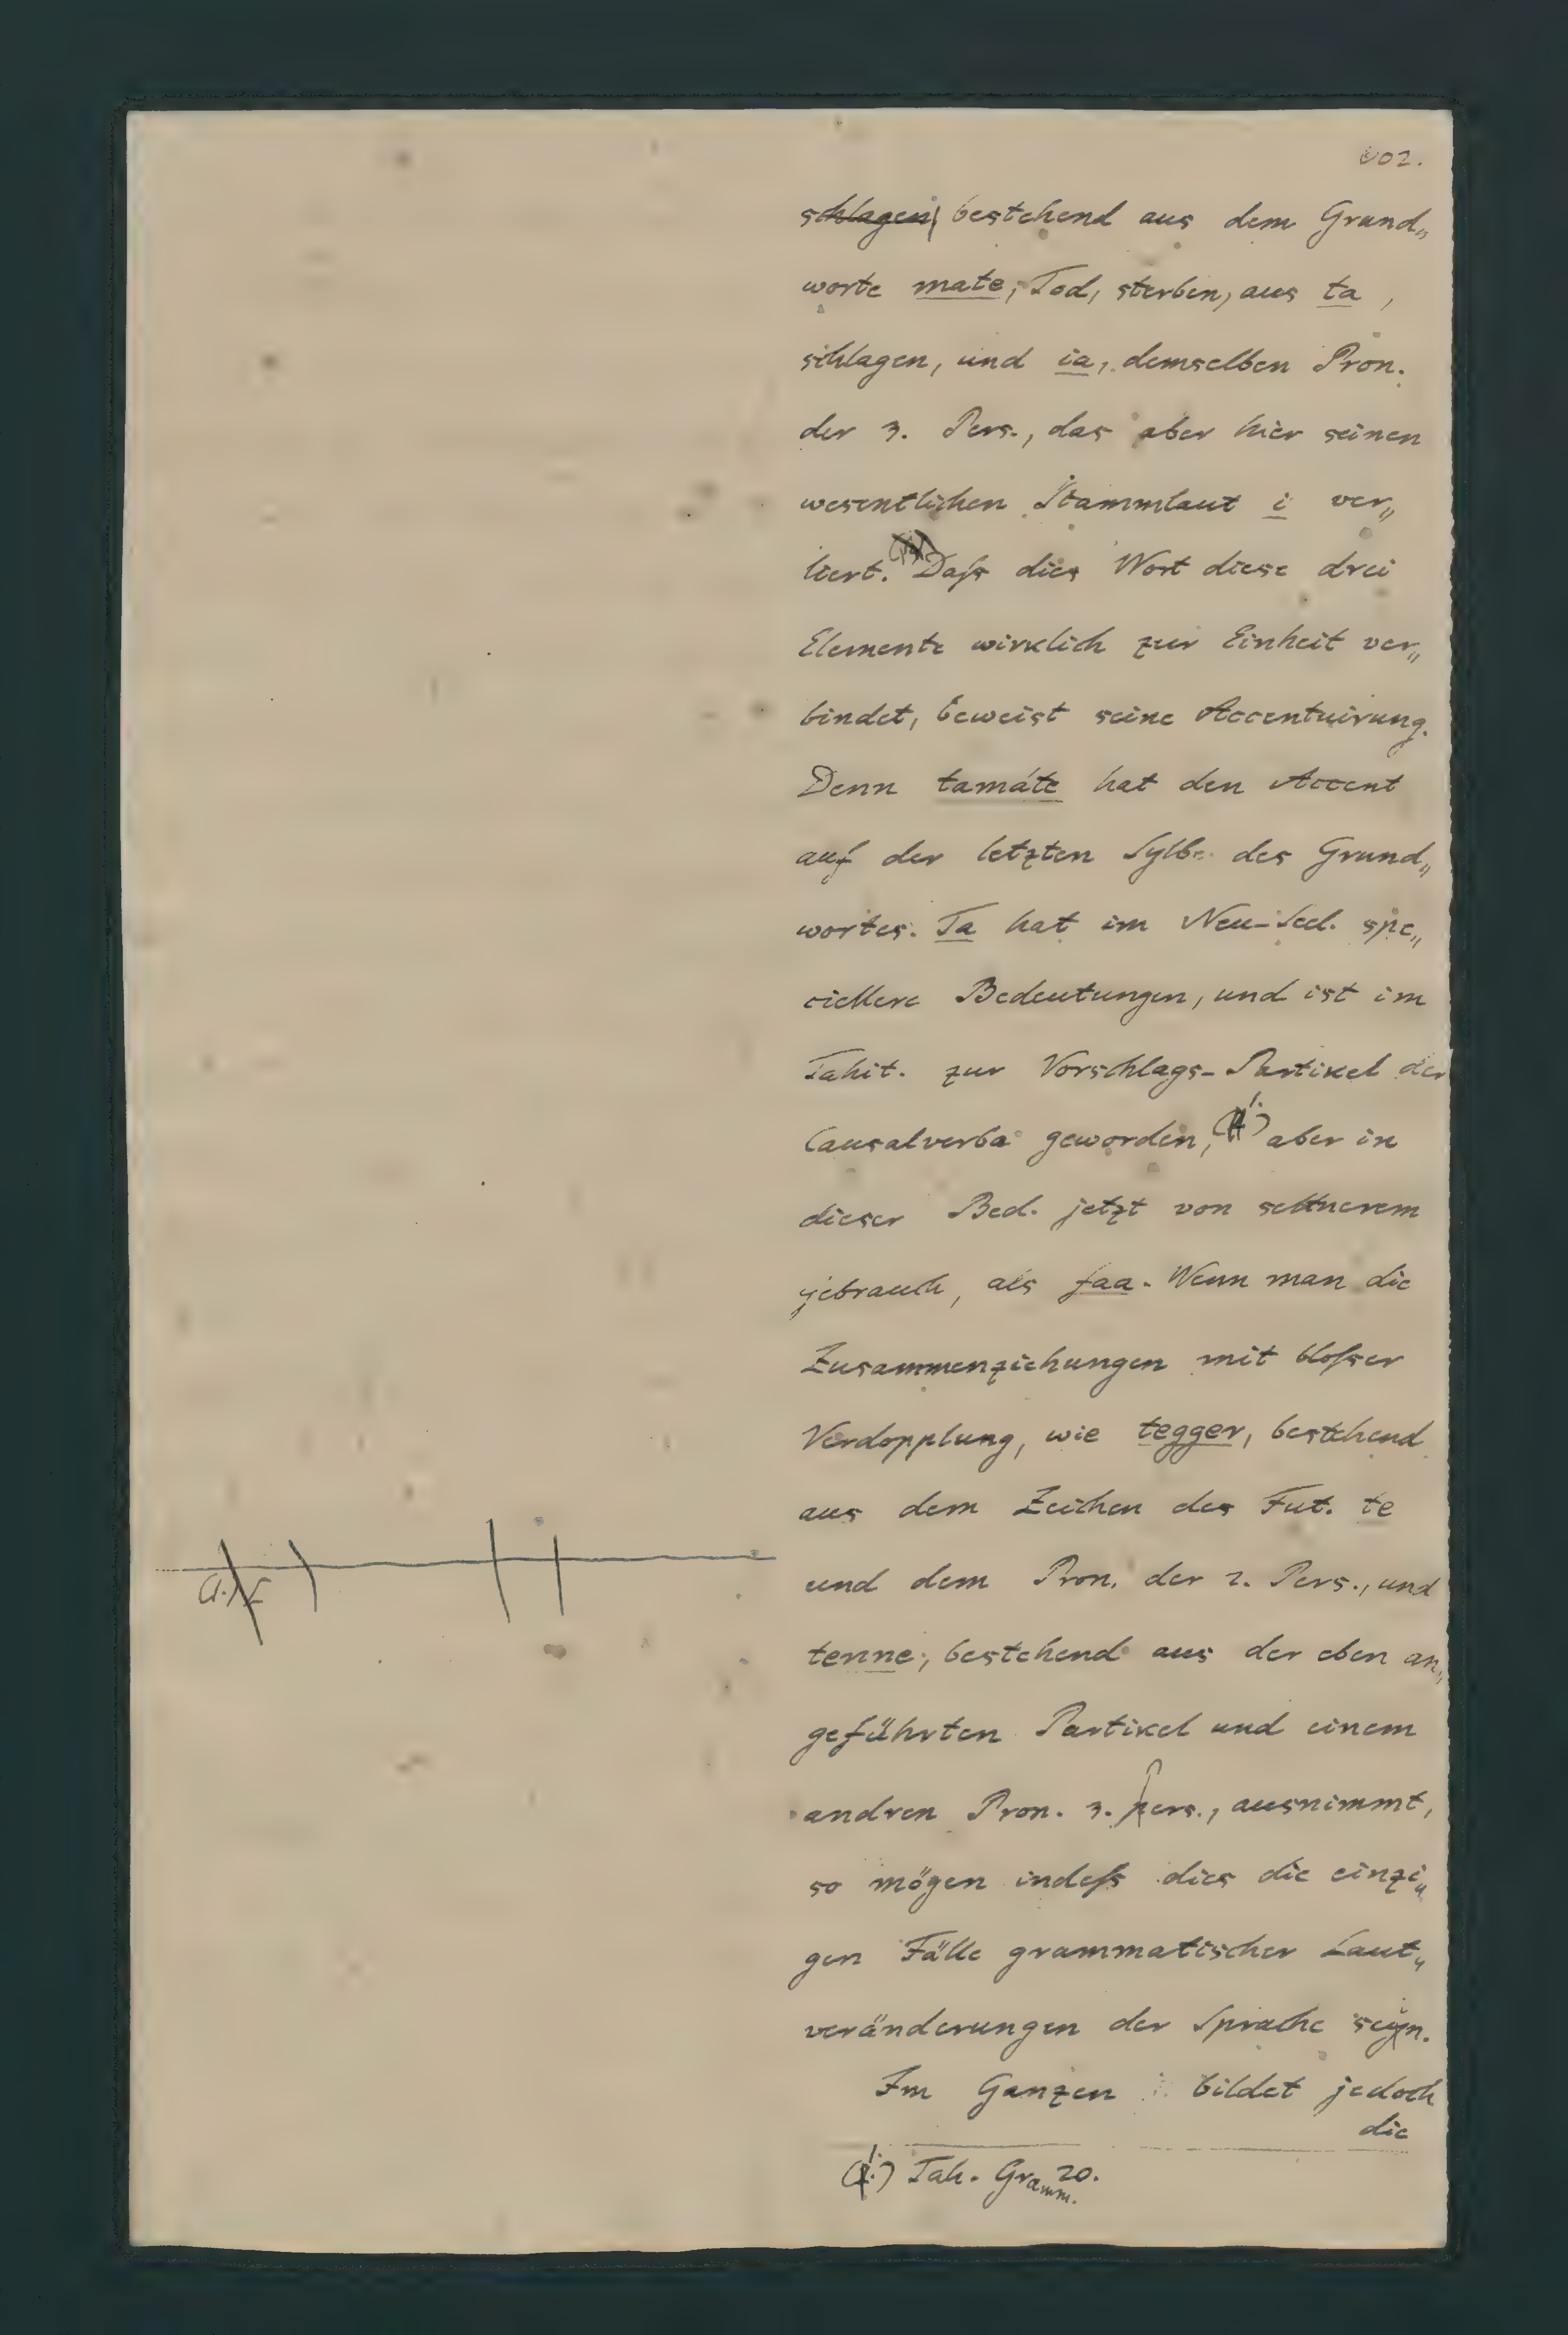 602.
schlagen bestehend aus dem Grund„
worte mate, Tod, sterben, aus ta,
schlagen, und ia, demselben Pron.
der 3. Pers., das aber hier seinen
wesentlichen Stammlaut i ver„
liert. Daſs dies Wort diese drei
Elemente wirklich zur Einheit ver„
bindet, beweist seine Accentuirung.
Denn tamáte hat den Accent
auf der letzten Sylbe des Grund„
wortes. Ta hat im Neu-Seel. spe„
ciellere Bedeutungen, und ist im
Tahit. zur Vorschlags-Partikel der
Causalverba geworden, (1.) aber in
dieser Bed. jetzt von seltnerem
gebrauch, als faa. Wenn man die
Zusammenziehungen mit bloſser
Verdopplung, wie tegger, bestehend
aus dem Zeichen des Fut. te
und dem Pron. der 2. Pers., und
tenne, bestehend aus der eben an„
geführten Partikel und einem
andren Pron. 3. Pers., ausnimmt,
so mögen indeſs dies die einzi„
gen Fälle grammatischer Laut„
veränderungen der Sprache sein.
Im Ganzen bildet jedoch
die
(1.) Tah. Gramm. 20.